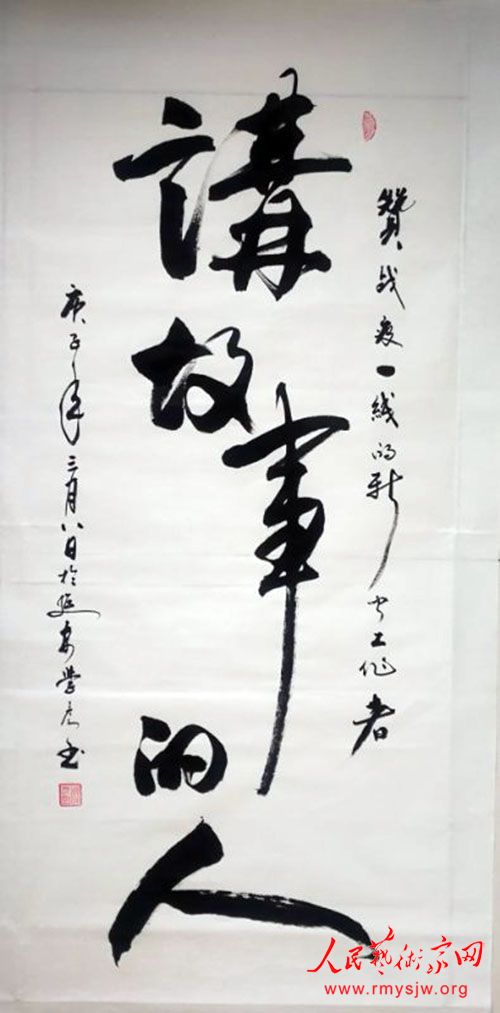 贊战疫一线的新闻工作者
講故事的人
庚子年三月八日於延安
人民藝術家网
www.rmysjw.org